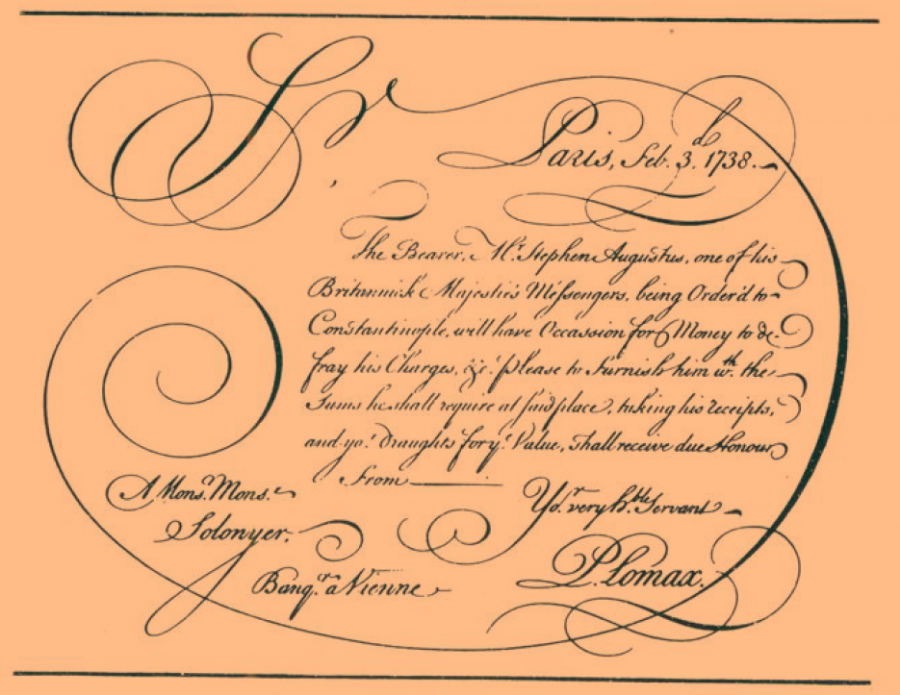 Sr.
Paris, Feb. 3.d 1738.
The Bearer, Mr. Stephen Augustus, one of his
Britannick Majestie's Meſsengers, being Order'd to
Constantinople, will have Occassion for Money to de-
fray his Charges, &c. please to furnish him wth. the
Sums he shall require at said place, taking his receipts,
and yor. draughts for ye. Value, shall receive due Honour
From
Yor. very h.ble Servant
P. Lomax.
A Monsr. Monsr.
Solonyer.
Banqr. a Vienne